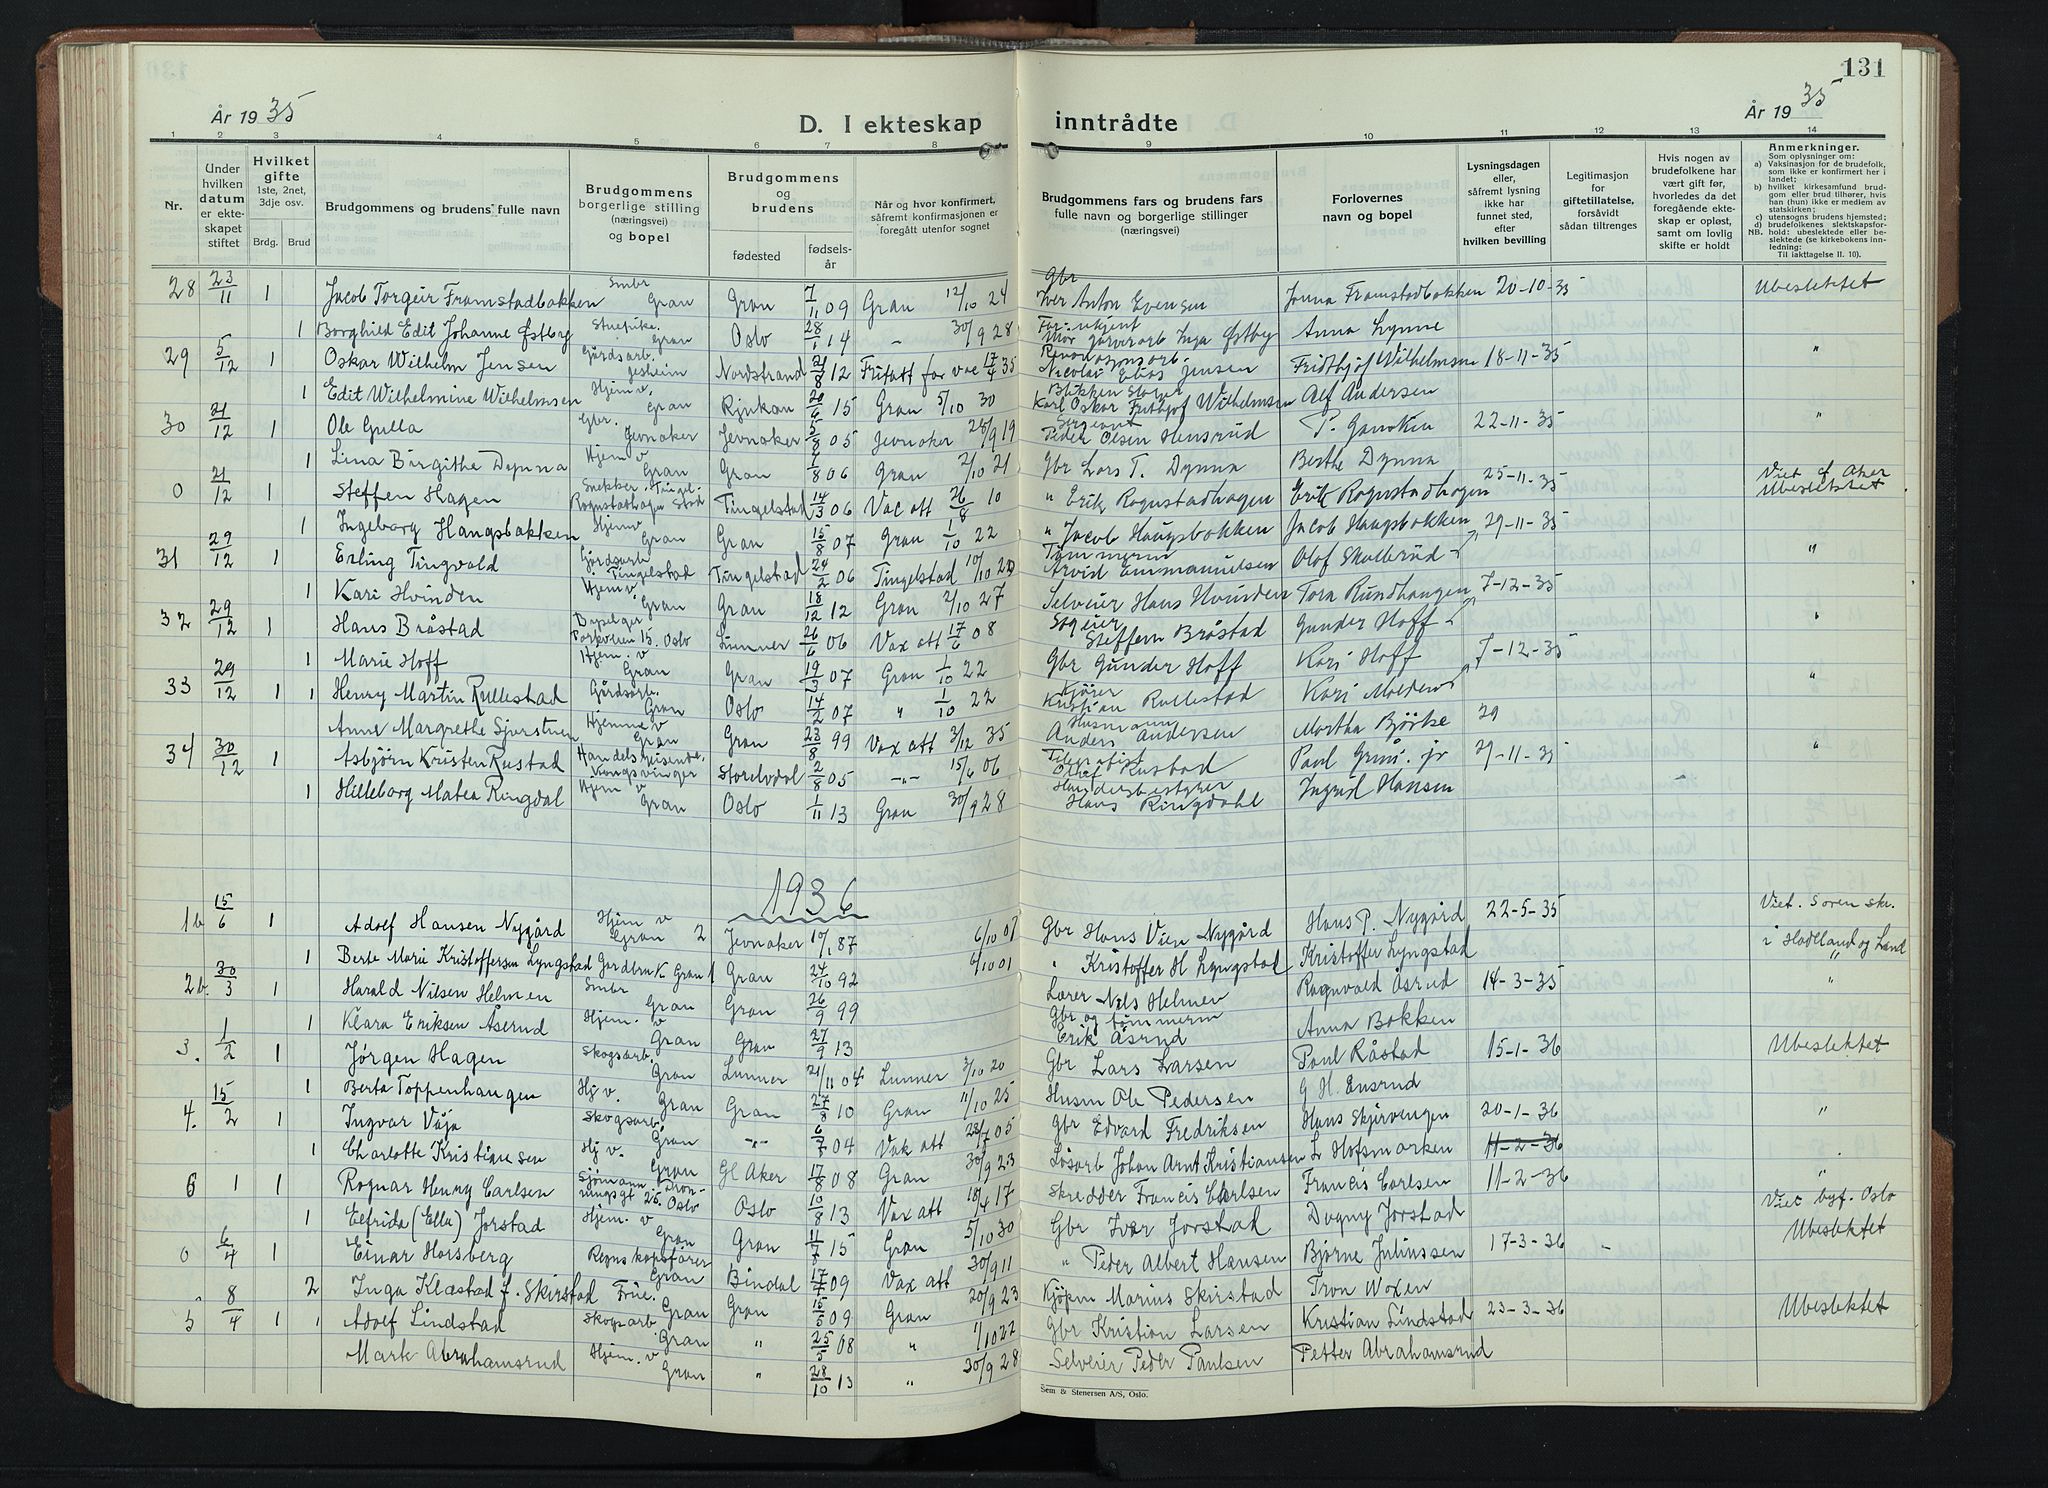 131
År 1935
D. I ekteskap inntrådte
År 1935
1 2 3 4 5 6 7 8 9 10 11 12 13 14
Nr.
Under hvilken datum er ekteskapet stiftet
Hvilket gifte 1ste, 2net, 3dje osv.
Brdg. Brud
Brudgommens og brudens fulle navn
Brudgommens borgerlige stilling (næringsvei) og bopel
Brudgommens og brudens
fødested
fødselsår
Når og hvor konfirmert, såfremt konfirmasjonen er foregått utenfor sognet
Brudgommens fars og brudens fars fulle navn og borgerlige stillinger (næringsvei)
Forlovernes navn og bopel
Lysningsdagen eller, såfremt lysning ikke har funnet sted, efter hvilken bevilling
Legitimasjon for giftetillatelse, forsåvidt sådan tiltrenges
Hvis nogen av brudefolkene har vært gift før, hvorledes da det foregående ekteskap er opløst, samt om lovlig skifte er holdt
Anmerkninger.
Som oplysninger om:
a) Vaksinasjon for de brudefolk, som ikke er konfirmert her i landet;
b) hvilket kirkesamfund brudgom eller brud tilhører, hvis han (hun) ikke er medlem av statskirken;
c) utensogns brudens hjemsted;
d) brudefolkenes slektskapsforhold: ubeslektede eller beslektede (se kirkebokens innledning;
NB.
Til iakttagelse II. 10).
28 23/11 1 Jacob Torgeir Framstadbakken Smbr Gran Gran 7/11 09 Gran 12/10 24 Gbr Iver Anton Evensen Jonna Framstadbakken 20-10-35 Ubeslektet
1 Borghild Edit Johanne Østby Stuepike Gran Oslo 28/1 14 " 30/9 28 Far ukjent Mor Inga Østby Anna Lynne
29 5/12 1 Oskar Wilhelm Jensen Gårdsarb. Jesheim Nordstrand 21/8 12 Fritatt for vac 17/4 35 Nicolai Elias Jensen Fridthjof Wilhelmsen 18-11-35 "
1 Edit Wilhelmine Wilhelmsen Hjem v. Gran Rjukan 20/6 15 Gran 5/10 30 Karl Oskar Fritjof Wilhelmsen Alf Andersen
30 21/12 1 Ole Gulla Gbr. Jevnaker Jevnaker 5/8 05 Jevnaker 28/9 19 Sergeant Peder Olsen Hensrud P. Ganskin 22-11-35 "
1 Lina Birgithe Dynna Hjem v Gran Gran 1/8 06 Gran 2/10 21 Gbr Lars T. Dynna Berthe Dynna
0 21/12 1 Steffen Hagen Snekker Tingel. Rognstadhagen Tingelstad 14/3 06 Vac att 26/8 10 " Erik Rognstadhagen Erik Rognstadhagen 25-11-35 Viet f. Aker Ubeslektet
1 Ingeborg Haugsbakken Hjemv Gran Gran 15/8 07 Gran 1/10 22 " Jacob Haugsbakken Jacob Haugsbakken 29-11-35
31 29/12 1 Erling Tingvold Gårdsarb Tingelstad Tingelstad 24/2 06 Tingelstad 10/10 20 Tømmerm Arvid Emmanuelsen Olof Skallerud "
1 Kari Hvinden Hjem v. Gran Gran 18/12 12 Gran 2/10 27 Selveier Hans Hvinden Tora Rundhaugen 7-12-35
32 29/12 1 Hans Bråstad Bypelger Parkveien 15. Oslo Lunner 26/6 06 Vax att 17/6 08 Sageier Steffern Bråstad Gunder Hoff "
1 Marie Hoff Hjem. v Gran Gran 19/3 07 Gran 1/10 22 Gbr Gunder Hoff Kari Hoff 7-12-35
33 29/12 1 1 Henry Martin Rullestad Gårdsarb. Gran Oslo 14/2 07 " 1/10 22 Kjører Kristian Rullestad Kari Molden "
Anne Margrethe Hjemme v Gran Gran 23/8 99 Vax att 3/12 35 Husmann Anders Andersen Martha Bjørke 29
34 30/12 1 Asbjørn Kristen Rustad Handelsreisende, Kongsvinger Storelvdal 2/8 05 -"- 15/6 06 Telegrafist Olaf Rustad Paul Grini. jr 29-11-35 "
1 Hilleborg Matea Ringdal Hjem v Gran Oslo 1/11 13 Gran 30/9 28 Handersbestyrer Hans Ringdahl Ingrid Hansen
1936
1b 15/6 1 Adolf Hansen Nygård Hjem v Gran 2 Jevnaker 10/1 87 6/10 07 Gbr Hans Nygård Hans P. Nygård 22-5-35 Viet. Soren skr.
1 Berte Marie Kristoffersen Lyngstad Jordbr K. Gran 1 Gran 24/10 92 6/10 01 " Kristoffer H Lyngstad Kristoffer Lyngstad i Hadeland og Land
2b. 30/3 1 Harald Nilsen Helmen Smbr Gran Gran 26/9 99 Lærer Nils Helmen Ragnvald Åsrud 14-3-35 "
1 Klara Eriksen Åserud Hjem. v Gran Gran 27/9 13 Gbr og tømmerm Erik Åsrud Anna Bakken
3. 1/2 1 Jørgen Hagen Skogsarb. Gran Lunner 21/11 04 Lunner 3/10 20 Gbr Lars Larsen Paul Råstad 15-1-36 Ubeslektet
1 Berta Toppenhaugen Hj v. Gran Gran 27/8 10 Gran 11/10 25 Husm Ole Pedersen G H. Ensrud
4. 15/2 1 Ingvar Våja Skogsarb. Gran -"- 6/7 04 Vak att 28/7 05 Gbr Edvard Fredriksen Hans Skjervengen 20-1-36 "
1 Charlotte Kristiansen Hj v. Gran Gl Aker 17/8 08 Gran 30/9 23 Løsarb Johan Arnt Kristiansen L Hofsmarken 11-2-36
6 1 1 Ragnar Henry Carlsen Sjømann Dronningsgt 25. Oslo Oslo 10/8 13 Vax att 18/4 17 Skredder Francis Carlsen Francis Carlsen 11-2-36 "
1 Elfrida (Ella) Jorstad Hjem. v Gran Gran 11/7 15 Gran 5/10 30 Gbr Ivar Jorstad Dagny Jorstad Viet byf. Oslo
0 6/4 1 Einar Horsberg Regnskapsfører Gran Bindal 17/7 09 Vax att 30/9 11 " Peder Albert Hansen Bjørne Juliussen 17-3-36 Ubeslektet
2 Inga Klæstad f. Skirstad Frue. Gran Gran 15/5 09 Gran 20/9 23 Kjøpm Marius Skirstad Tron Woxen
5 8/4 1 1 Adolf Lindstad Skogsarb Gran " 25/5 08 " 1/10 22 Gbr Kristian Larsen Kristian Lindstad 23-3-36 Ubeslektet
Mark Abrahamsrud Hjem. v Gran " 28/10 13 " 30/9 28 Selveier Peder Paulsen Petter Abrahamsrud
Sem & Stenersen A/S, Oslo.